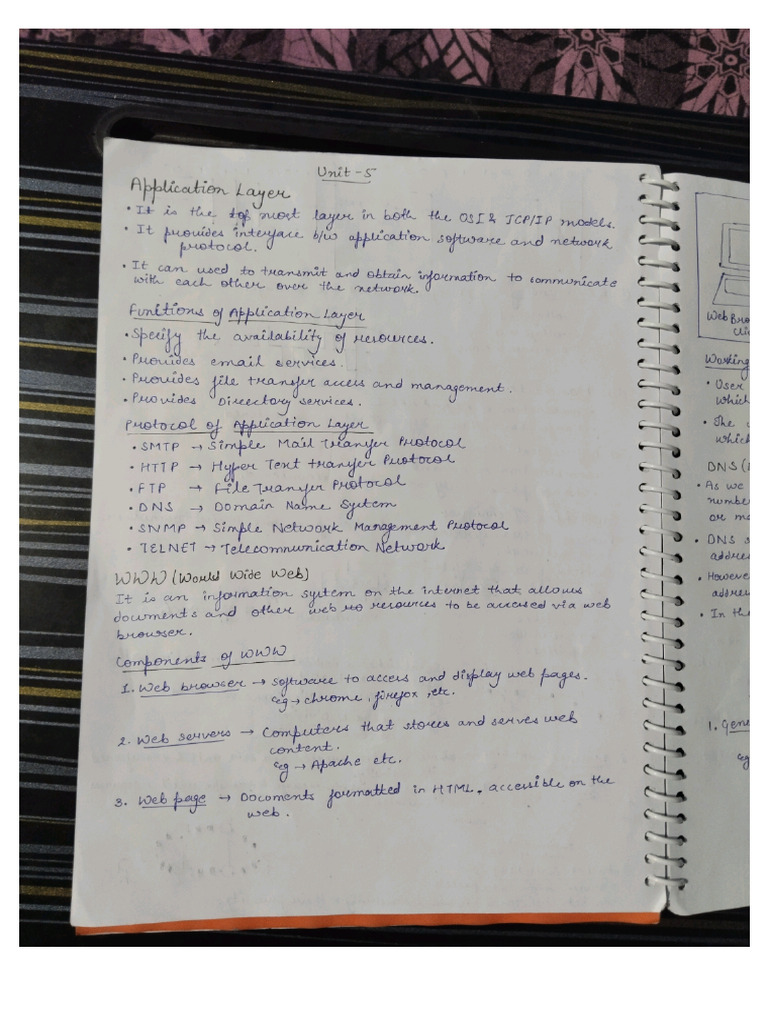 Unit - 5
Application Layer
• It is the top most layer in both the OSI & TCP/IP models.
• It provides interface b/w application software and network
protocol.
• It can used to transmit and obtain information to communicate
with each other over the network.
Funitions of Application Layer
• Specify the availability of resources.
• Provides email services.
• Provides file transfer access and management.
• Provides Directory services.
Protocol of Application Layer
• SMTP → Simple Mail Tranyer Protocol
• HTTP → Hyper Text tranyer Protocol
• FTP → File Tranyer Protocol
• DNS → Domain Name System
• SNMP → Simple Network Management Protocol
• TELNET → Telecommunication Network
WWW (World Wide Web)
It is an information system on the internet that allows
documents and other web resources to be accesed via web
browser.
Components of WWW
1. Web browser → Software to access and display web pages.
eg → chrome, firefox, etc.
2. Web servers → Computers that stores and serves web
content.
eg → Apache etc.
3. Web page → Documents formatted in HTML, accessible on the
web.
Web Bro
Cli
Working
• User
which
• The
which
DNS (
• As we
number
or m
• DNS s
addre
• Howeve
addre
• In the
1. Gene
eg